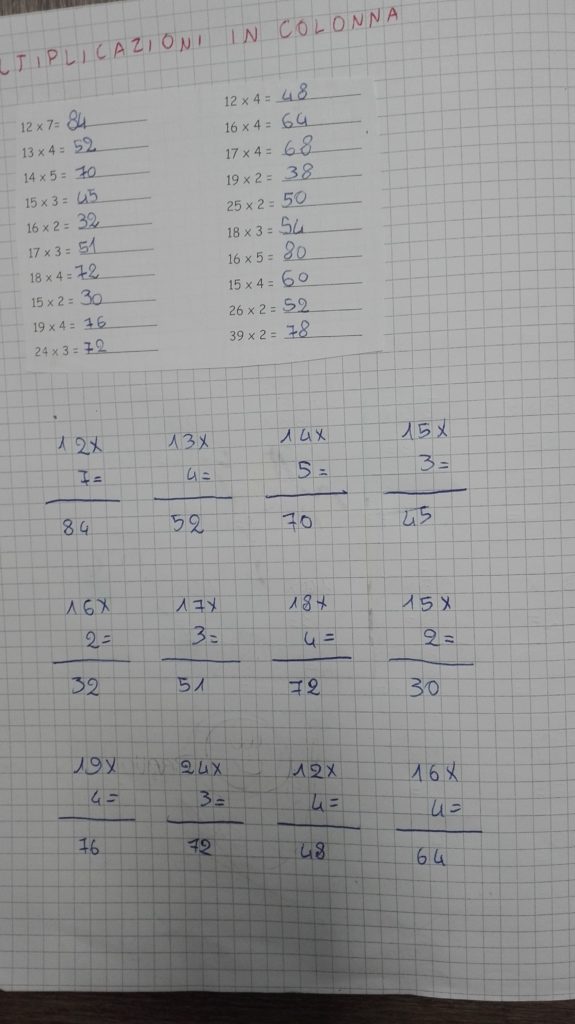 LTIPLICAZIONI IN COLONNA
12 x 7= 84
13 x 4 = 52
14 x 5 = 70
15 x 3 = 45
16 x 2 = 32
17 x 3 = 51
18 x 4 = 72
15 x 2 = 30
19 x 4 = 76
24 x 3 = 72
12 x 4 = 48
16 x 4 = 64
17 x 4 = 68
19 x 2 = 38
25 x 2 = 50
18 x 3 = 54
16 x 5 = 80
15 x 4 = 60
26 x 2 = 52
39 x 2 = 78
12x 13x 14x 15x
7= 4= 5= 3=
84 52 70 45
16x 17x 18x 15x
2= 3= 4= 2=
32 51 72 30
19x 24x 12x 16x
4= 3= 4= 4=
76 72 48 64